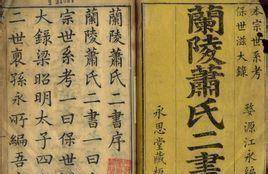 宗世系考
保世滋大錄
婺源江永
蘭陵蕭氏二書
永恩堂藏板
蘭陵蕭氏二書序
蘭陵蕭氏二書一曰
宗世系考一曰保世
大錄梁昭明太子四
二世裔孫永所編吾